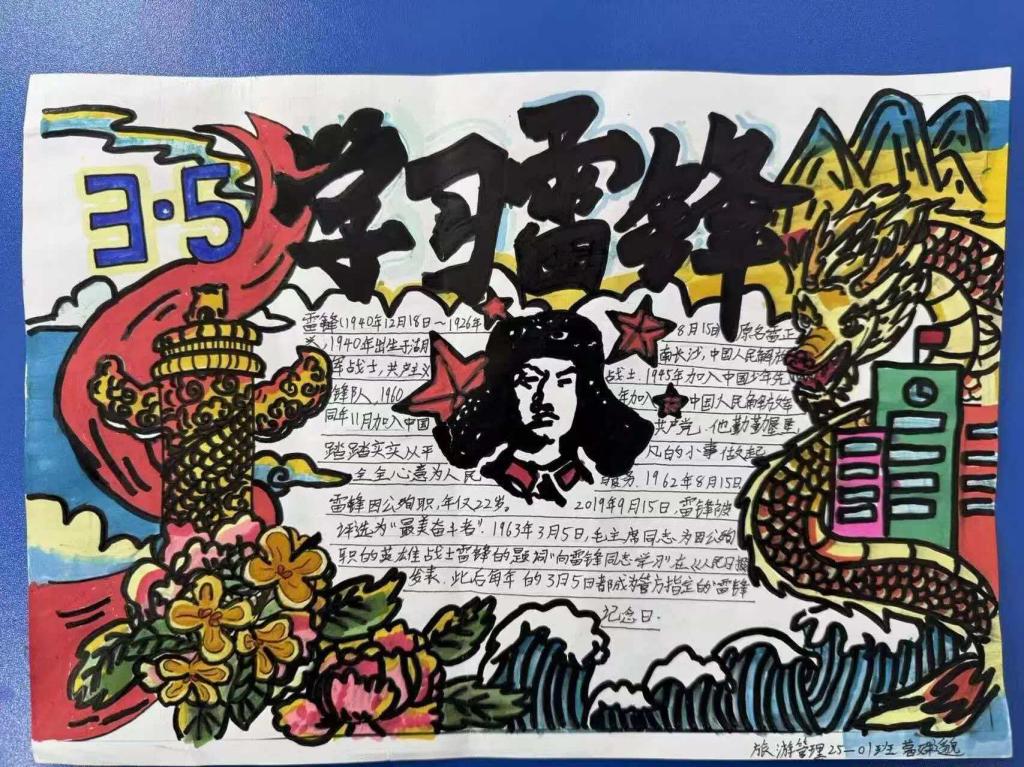 3·5
学习雷锋
雷锋(1940年12月18日~1926年 8月15日 原名雷正
兴,1940年出生于湖 南长沙,中国人民解放
军战士,共产主义 战士,1945年加入中国少年先
锋队,1960 年加入 中国人民解放军
同年11月加入中国 共产党,他勤勤恳恳
踏踏实实从平 凡的小事做起
全全心意为人民 服务,1962年8月15日
雷锋因公殉职,年仅22岁。 2019年9月15日,雷锋被
评选为"最美奋斗者",1963年3月5日,毛主席同志为因公殉
职的英雄战士雷锋的题词"向雷锋同志学习"在《人民日报
发表,此后每年的3月5日都成为官方指定的"雷锋
纪念日.
旅游管理25-01班